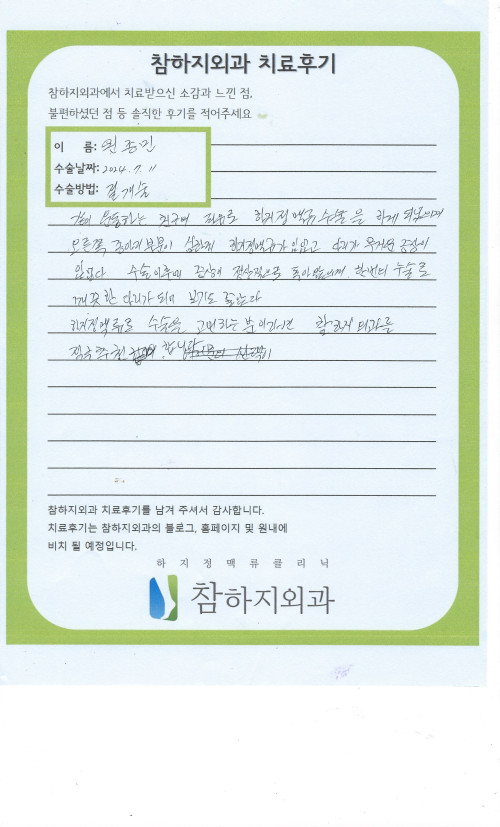 참하지외과 치료후기
참하지외과에서 치료받으신 소감과 느낀 점,
불편하셨던 점 등 솔직한 후기를 적어주세요
이 름: 원종민
수술날짜: 2024. 7. 11
수술방법: 절개술
같이 운동하는 친구의 권유로 하지정맥류 수술을 하게 되었으며
오른쪽 종아리 부분이 심하게 하지정맥류가 있었고 다리가 무거운 증상이
있었다 수술 이후에 증상이 정상적으로 돌아왔으며 한번의 수술로
깨끗한 다리가 되어 보기도 좋았다
하지정맥류로 수술을 고민하는 분이라면 참하지외과를
적극 추천 합니다
참하지외과 치료후기를 남겨 주셔서 감사합니다.
치료후기는 참하지외과의 블로그, 홈페이지 및 원내에
비치 될 예정입니다.
하지정맥류클리닉
참하지외과